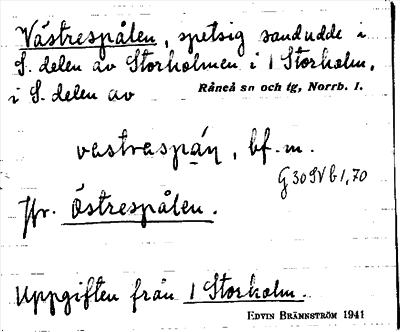 Västrespålen, spetsig sandudde i
S. delen av Storholmen i 1 Storholm,
i S. delen av Råneå sn och tg, Norrb. l.
västraspáṇ, bf. m.
G30SVb1,70
Jfr. Östrespålen.
Uppgiften från 1 Storholm.
EDVIN BRÄNNSTRÖM 1941